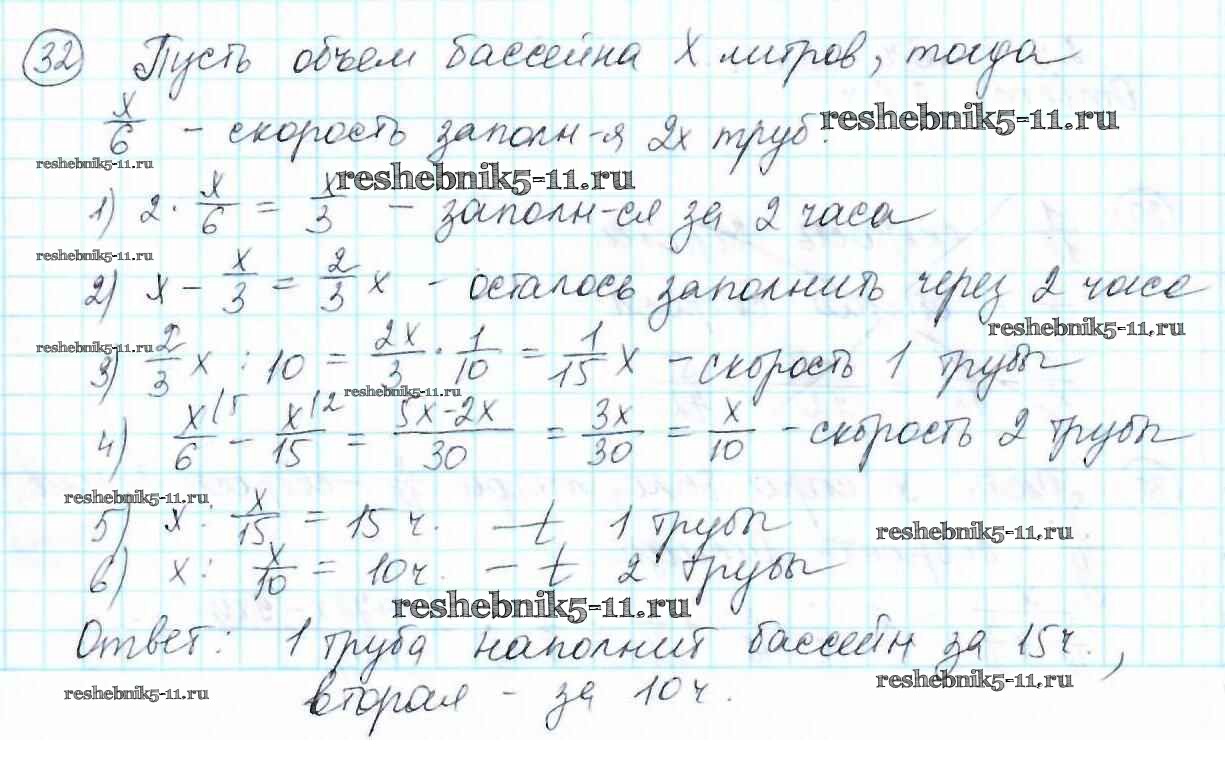 32 Пусть объем бассейна x литров, тогда
x/6 - скорость заполн-я 2х труб.
reshebnik5-11.ru
reshebnik5-11.ru
reshebnik5-11.ru
1) 2 · x/6 = x/3 - заполн-ся за 2 часа
reshebnik5-11.ru
2) x - x/3 = 2/3 x - осталось заполнить через 2 часа
reshebnik5-11.ru
reshebnik5-11.ru
3) 2/3 x : 10 = 2x/3 · 1/10 = 1/15 x - скорость 1 трубы
reshebnik5-11.ru
4) x/6 \5 - x/15 \2 = 5x-2x/30 = 3x/30 = x/10 - скорость 2 трубы
reshebnik5-11.ru
5) x : x/15 = 15 ч. - t 1 трубы
reshebnik5-11.ru
6) x : x/10 = 10 ч. - t 2 трубы
reshebnik5-11.ru
Ответ: 1 труба наполнит бассейн за 15 ч.,
reshebnik5-11.ru
reshebnik5-11.ru
вторая - за 10 ч.